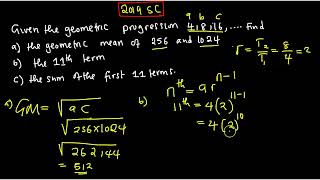 2019 SC
a b c
Given the geometric progression 4,8,16,.... find
a) the geometric mean of 256 and 1024
b) the 11th term
c) the sum of the first 11 terms.
r = T₂/T₁ = 8/4 = 2
a) GM = √ac
√256×1024
√262144
= 512
b) nth = ar^(n-1)
11th = 4(2)^(11-1)
= 4(2)^10